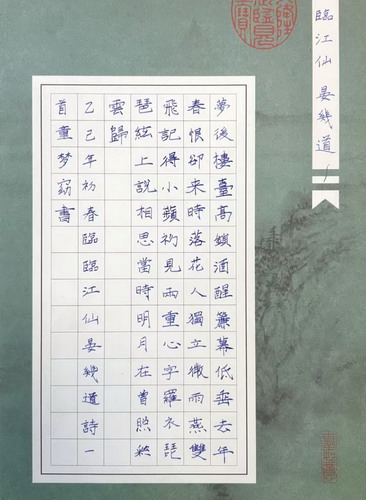 臨江仙 晏幾道
夢後樓臺高鎖酒醒簾幕低垂去年
春恨卻来時落花人獨立微雨燕雙
飛記得小蘋初見兩重心字羅衣琵
琶絃上說相思當時明月在曾照彩
雲歸
乙己年初春臨臨江仙晏幾道詩一
首童梦書